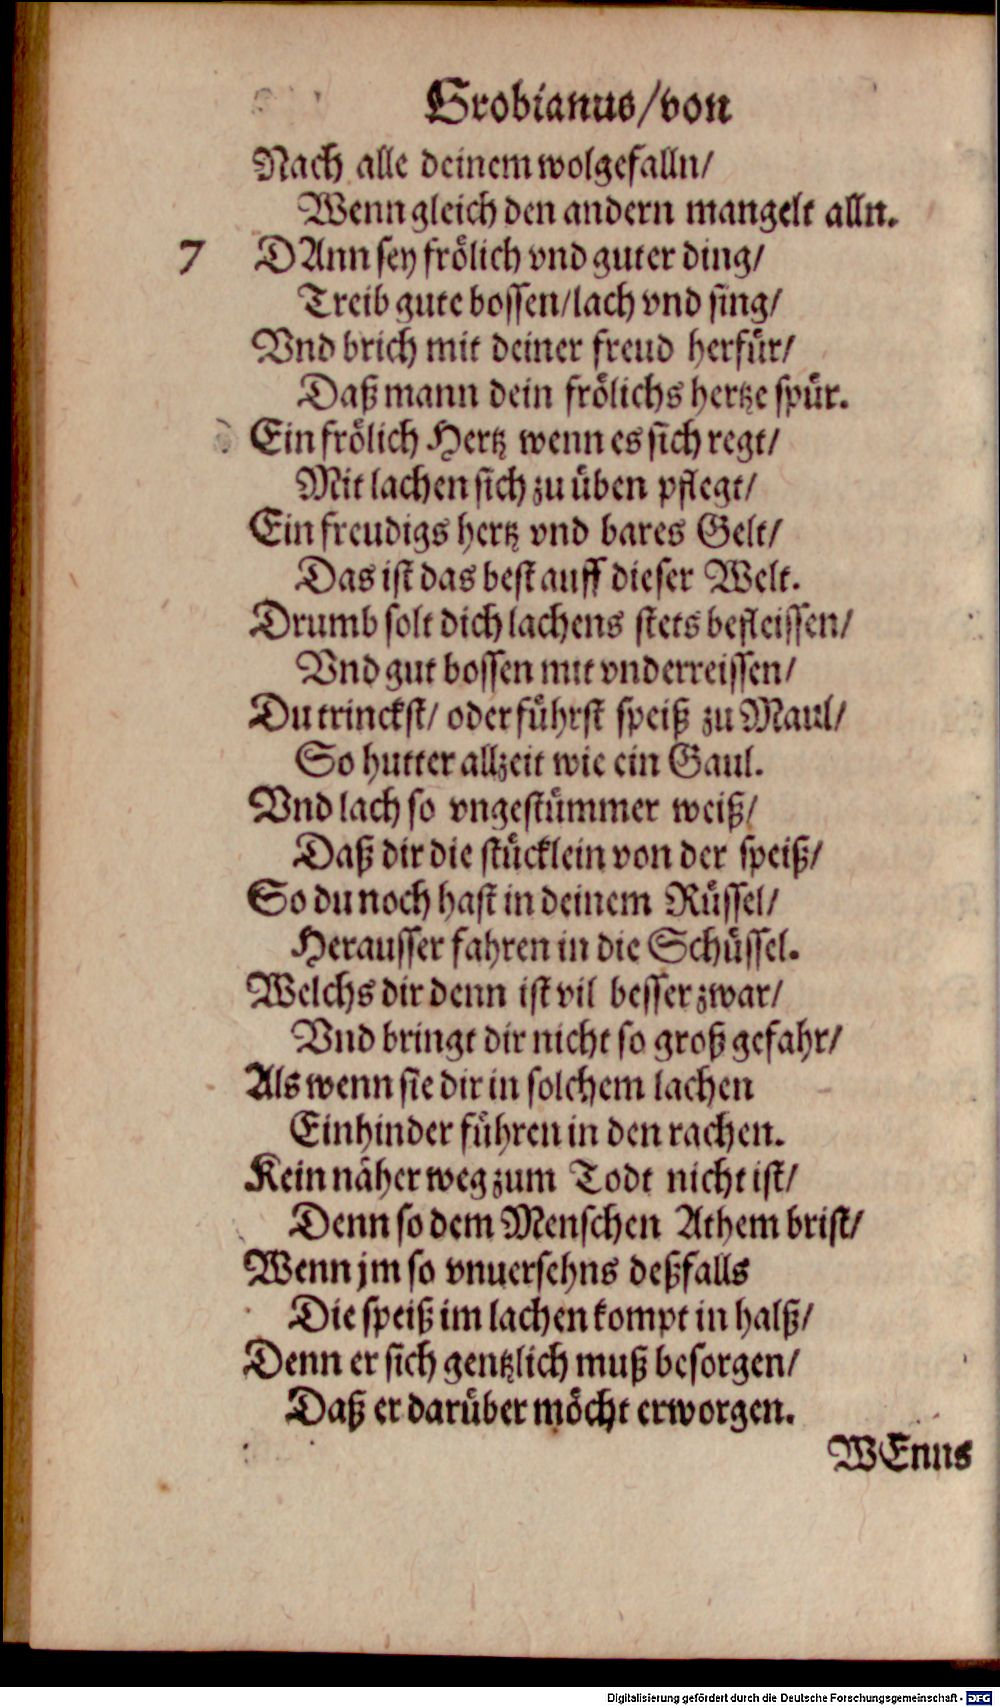 Grobianus/von
Nach alle deinem wolgefalln/
Wenn gleich den andern mangelt alln.
7 DAnn sey frölich vnd guter ding/
Treib gute bossen/lach vnd sing/
Vnd brich mit deiner freud herfür/
Daß mann dein frölichs hertze spür.
Ein frölich Hertz wenn es sich regt/
Mit lachen sich zu üben pflegt/
Ein freudigs hertz vnd bares Gelt/
Das ist das best auff dieser Welt.
Drumb solt dich lachens stets befleissen/
Vnd gut bossen mit vnderreissen/
Du trinckst/ oder führst speiß zu Maul/
So hutter allzeit wie ein Gaul.
Vnd lach so vngestümmer weiß/
Daß dir die stücklein von der speiß/
So du noch hast in deinem Rüssel/
Herausser fahren in die Schüssel.
Welchs dir denn ist vil besser zwar/
Vnd bringt dir nicht so groß gefahr/
Als wenn sie dir in solchem lachen
Einhinder führen in den rachen.
Kein näher weg zum Todt nicht ist/
Denn so dem Menschen Athem brist/
Wenn jm so vnuersehns deßfalls
Die speiß im lachen kompt in halß/
Denn er sich gentzlich muß besorgen/
Daß er darüber möcht erworgen.
WEnns
Digitalisierung gefördert durch die Deutsche Forschungsgemeinschaft - DFG